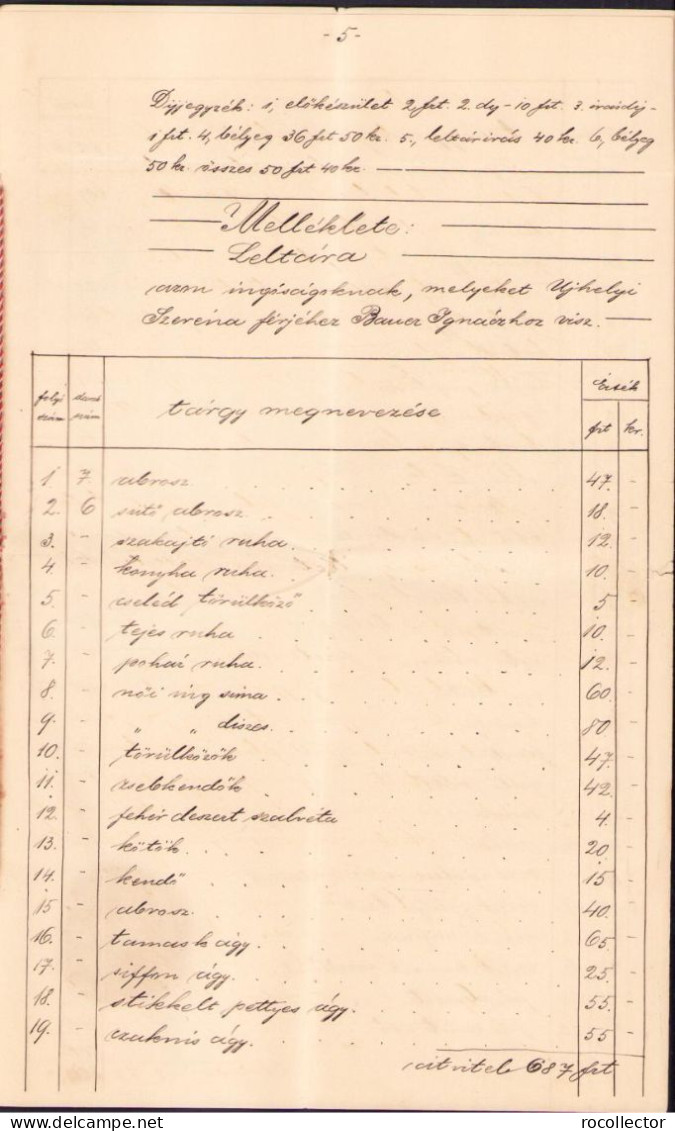 - 5 -
Díjjegyzék: 1, előkészület 2 frt. 2. díj - 10 frt. 3. írásdíj -
1 frt. 4, bélyeg 36 frt 50 kr. 5., leltárirás 40 kr. 6, bélyeg
50 kr. összes 50 frt 40 kr.
Melléklete:
Leltára
azon ingóságoknak, melyeket Ujhelyi
Szeréna férjéhez Bauer Ignáczhoz visz.
folyó szám darab szám tárgy megnevezése Érték frt kr.
1 7. abrosz 47. -
2. 6 sütő abrosz 18. -
3. - szakajtó ruha. 12. -
4. - konyha ruha. 10. -
5. - cseléd törülköző 5 -
6. - tejes ruha 10. -
7. - pohár ruha. 12. -
8. - női ing sima. 60. -
9. - " " diszes. 80 -
10. - törülközők 47. -
11. - zsebkendők 42. -
12. - fehér deszert szalvéta 4. -
13. - kötők. 20. -
14. - kendő 15 -
15 - abrosz. 40. -
16. - tamask ágy. 65. -
17. - siffon ágy. 25. -
18. - stikkelt pettyes ágy. 55. -
19. - ágy. 55 -
átvitel 687 frt
rocollector